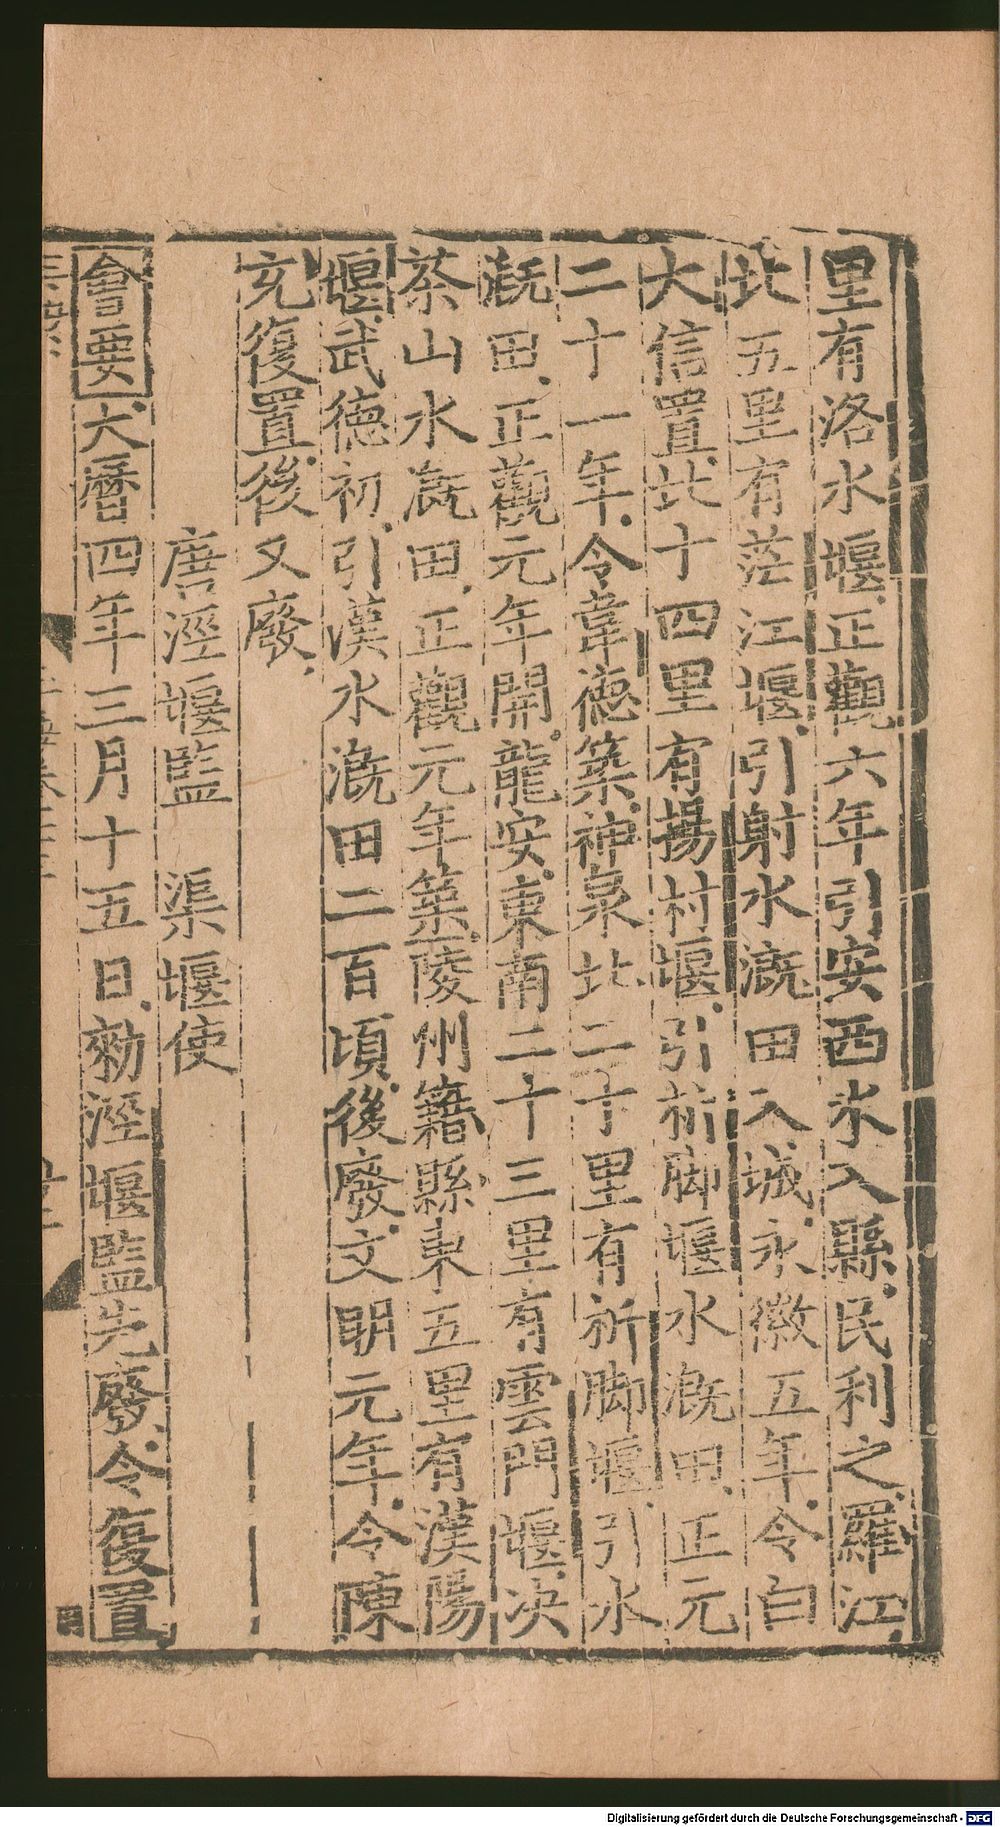 里有洛水堰正觀六年引安西水入縣民利之羅江
北五里有茫江堰引射水漑田入城永徽五年令白
大信置北十四里有楊村堰引折脚堰水漑田正元
二十一年令韋德築神泉北二十里有折脚堰引水
漑田正觀元年開龍安東南二十三里有雲門堰決
茶山水漑田正觀元年築陵州籍縣東五里有漢陽
堰武德初引漢水漑田二百頃後廢文明元年令陳
充復置後又廢
唐涇堰監 渠堰使
會要大曆四年三月十五日勑涇堰監先廢令復置
Digitalisierung gefördert durch die Deutsche Forschungsgemeinschaft - DFG